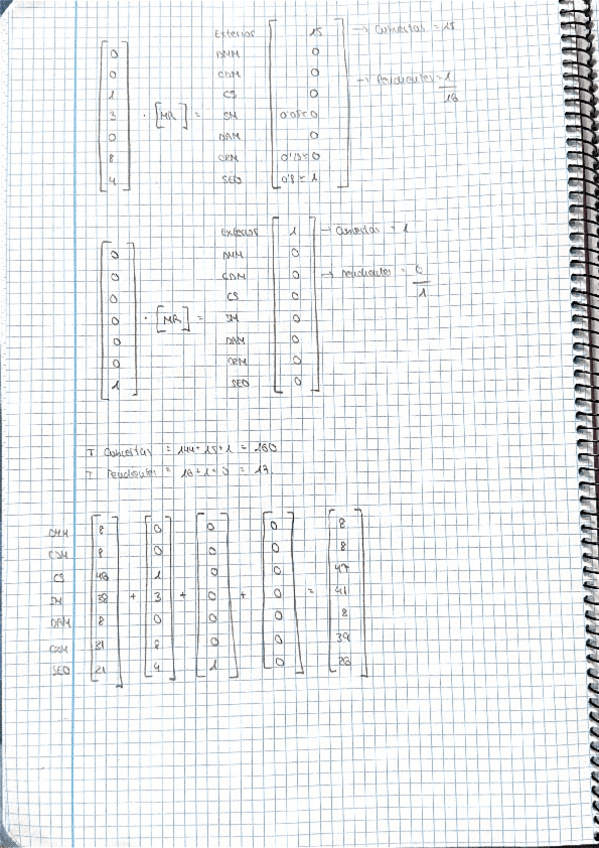 Exterior 15 → Cubiertas = 15
0 DMM 0
0 CDM 0 → Pendientes = 1/16
1 CS 0
3 · [MR] = SM 0'05≈0
0 DAM 0
8 COM 0'15≈0
4 SEO 0'8≈1
Exterior 1 → Cubiertas = 1
0 DMM 0
0 CDM 0 → Pendientes = 0/1
0 CS 0
0 · [MR] = SM 0
0 DAM 0
0 COM 0
1 SEO 0
T Cubiertas = 144+15+1 = 160
T Pendientes = 16+1+0 = 17
DMM 8 0 0 0 8
CDM 8 0 0 0 8
CS 46 1 0 0 47
SM 38 + 3 + 0 + 0 = 41
DAM 8 0 0 0 8
COM 31 8 0 0 39
SEO 21 4 1 0 26